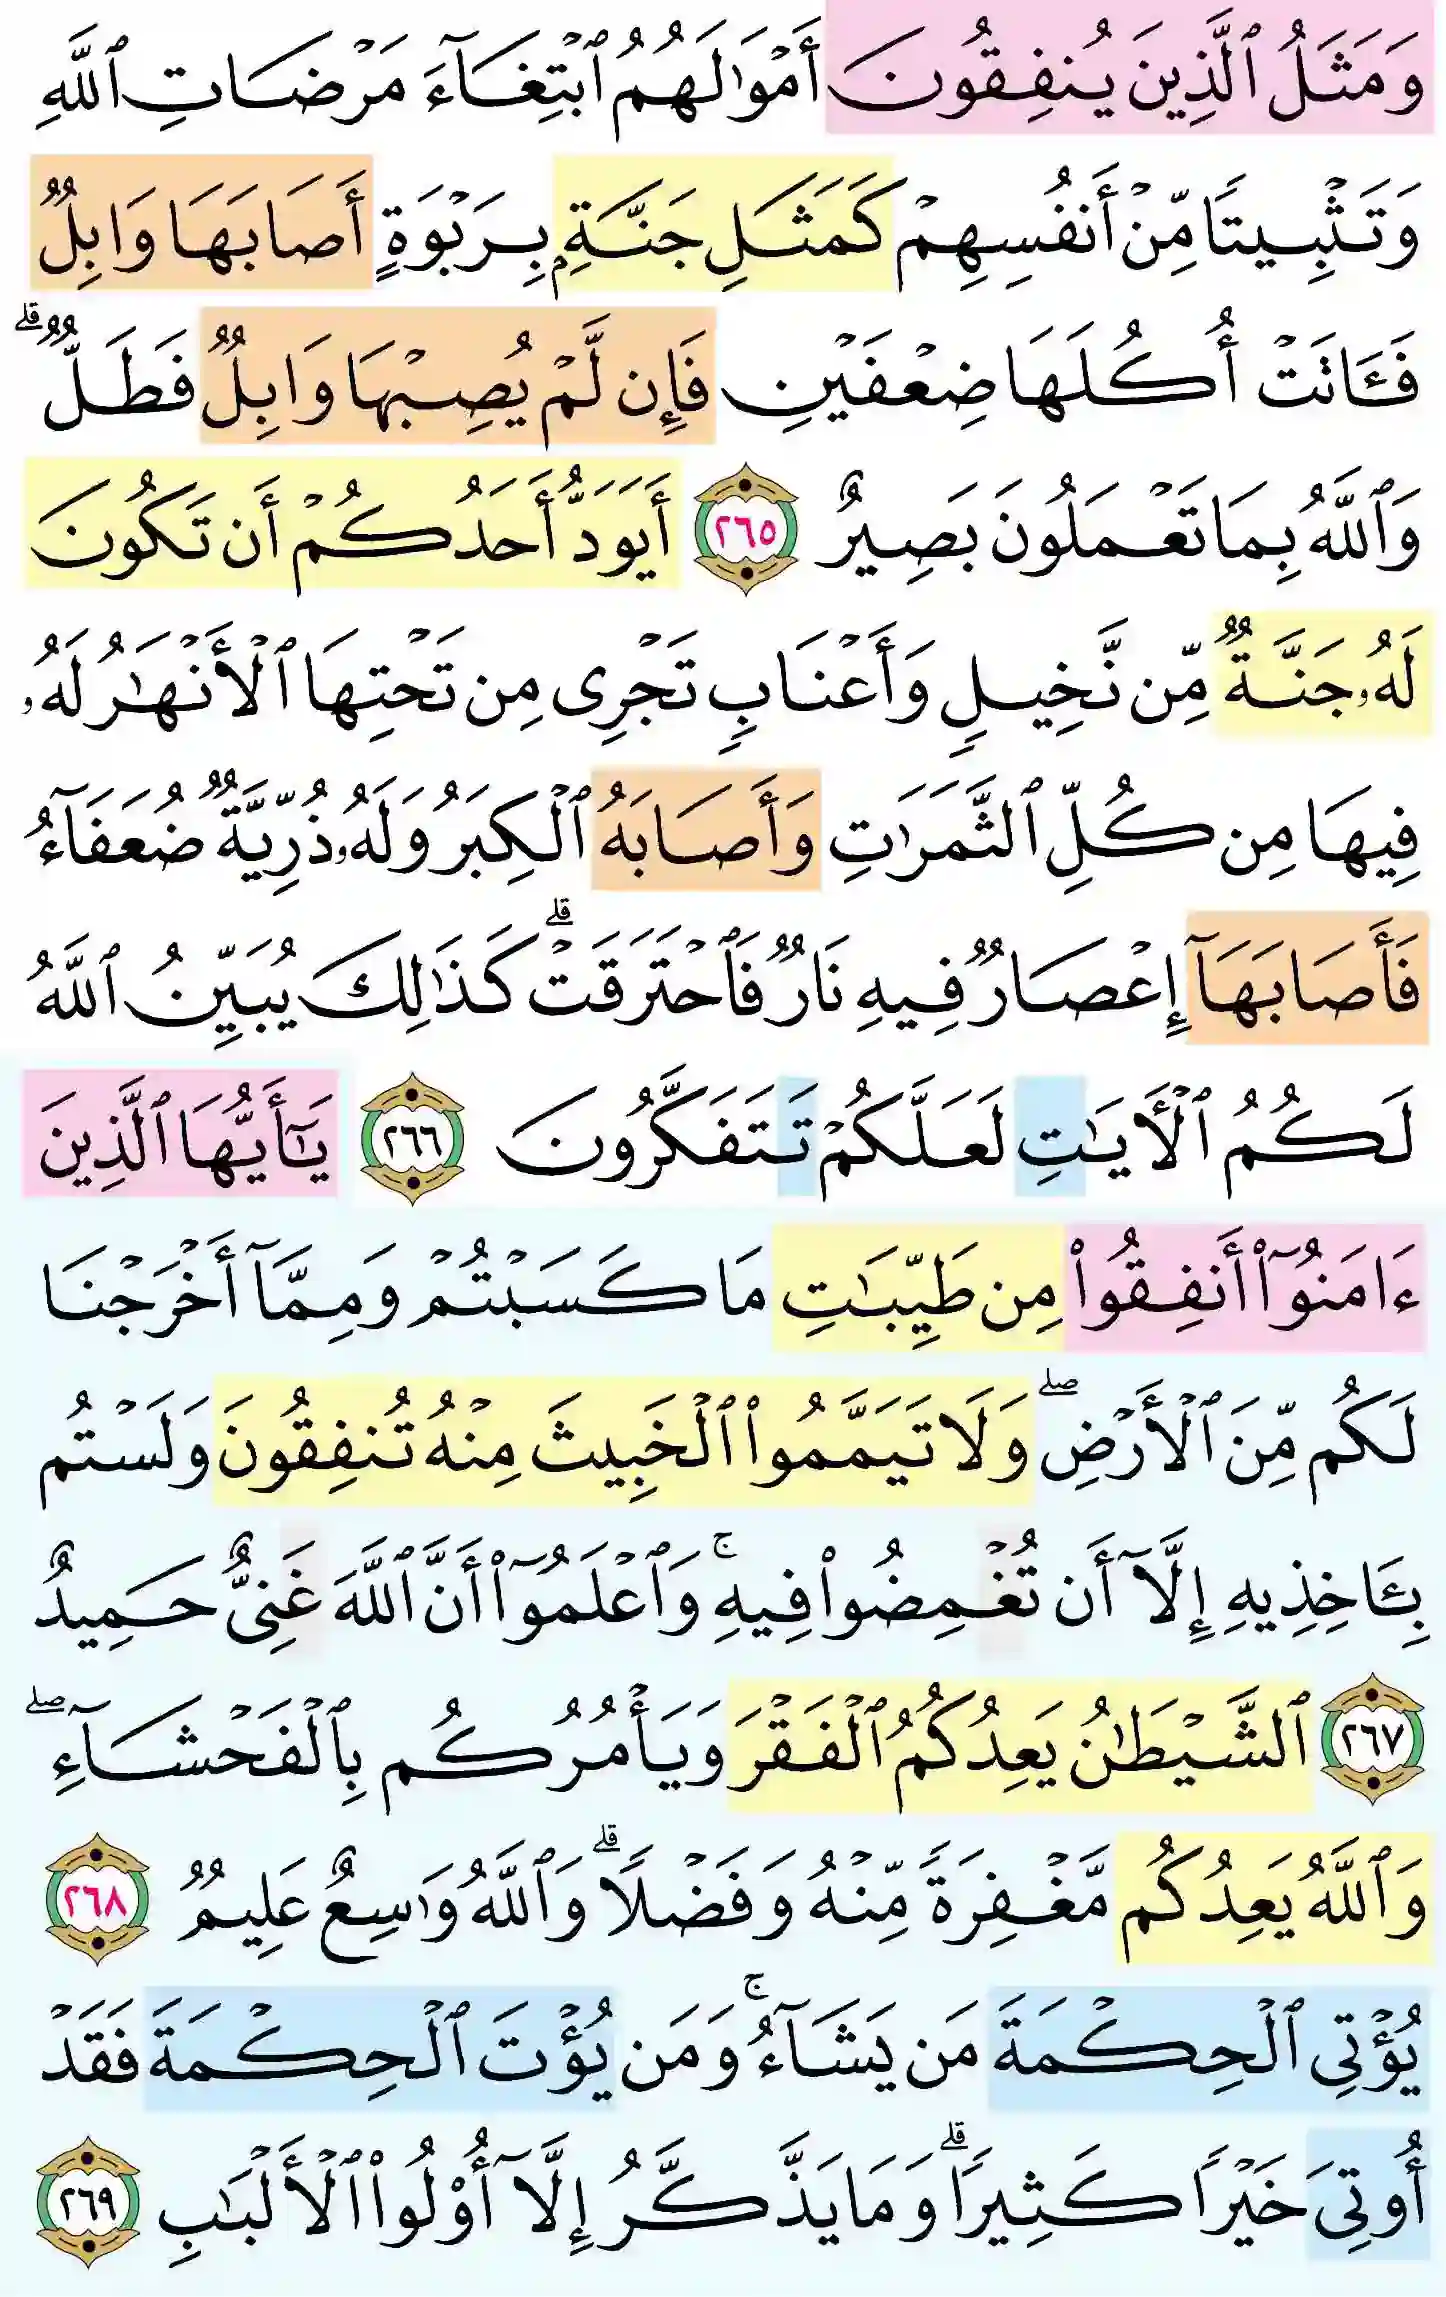 وَمَثَلُ ٱلَّذِينَ يُنفِقُونَ أَمْوَٰلَهُمُ ٱبْتِغَآءَ مَرْضَاتِ ٱللَّهِ
وَتَثْبِيتًا مِّنْ أَنفُسِهِمْ كَمَثَلِ جَنَّةٍۭ بِرَبْوَةٍ أَصَابَهَا وَابِلٌ
فَـَٔاتَتْ أُكُلَهَا ضِعْفَيْنِ فَإِن لَّمْ يُصِبْهَا وَابِلٌ فَطَلٌّ ۗ
وَٱللَّهُ بِمَا تَعْمَلُونَ بَصِيرٌ ٢٦٥ أَيَوَدُّ أَحَدُكُمْ أَن تَكُونَ
لَهُۥ جَنَّةٌ مِّن نَّخِيلٍ وَأَعْنَابٍ تَجْرِى مِن تَحْتِهَا ٱلْأَنْهَٰرُ لَهُۥ
فِيهَا مِن كُلِّ ٱلثَّمَرَٰتِ وَأَصَابَهُ ٱلْكِبَرُ وَلَهُۥ ذُرِّيَّةٌ ضُعَفَآءُ
فَأَصَابَهَآ إِعْصَارٌ فِيهِ نَارٌ فَٱحْتَرَقَتْ ۗ كَذَٰلِكَ يُبَيِّنُ ٱللَّهُ
لَكُمُ ٱلْأَيَٰتِ لَعَلَّكُمْ تَتَفَكَّرُونَ ٢٦٦ يَٰٓأَيُّهَا ٱلَّذِينَ
ءَامَنُوٓا۟ أَنفِقُوا۟ مِن طَيِّبَٰتِ مَا كَسَبْتُمْ وَمِمَّآ أَخْرَجْنَا
لَكُم مِّنَ ٱلْأَرْضِ ۖ وَلَا تَيَمَّمُوا۟ ٱلْخَبِيثَ مِنْهُ تُنفِقُونَ وَلَسْتُم
بِـَٔاخِذِيهِ إِلَّآ أَن تُغْمِضُوا۟ فِيهِ ۚ وَٱعْلَمُوٓا۟ أَنَّ ٱللَّهَ غَنِىٌّ حَمِيدٌ
٢٦٧ ٱلشَّيْطَٰنُ يَعِدُكُمُ ٱلْفَقْرَ وَيَأْمُرُكُم بِٱلْفَحْشَآءِ ۖ
وَٱللَّهُ يَعِدُكُم مَّغْفِرَةً مِّنْهُ وَفَضْلًا ۗ وَٱللَّهُ وَٰسِعٌ عَلِيمٌ ٢٦٨
يُؤْتِى ٱلْحِكْمَةَ مَن يَشَآءُ ۚ وَمَن يُؤْتَ ٱلْحِكْمَةَ فَقَدْ
أُوتِىَ خَيْرًا كَثِيرًا ۗ وَمَا يَذَّكَّرُ إِلَّآ أُو۟لُوا۟ ٱلْأَلْبَٰبِ ٢٦٩